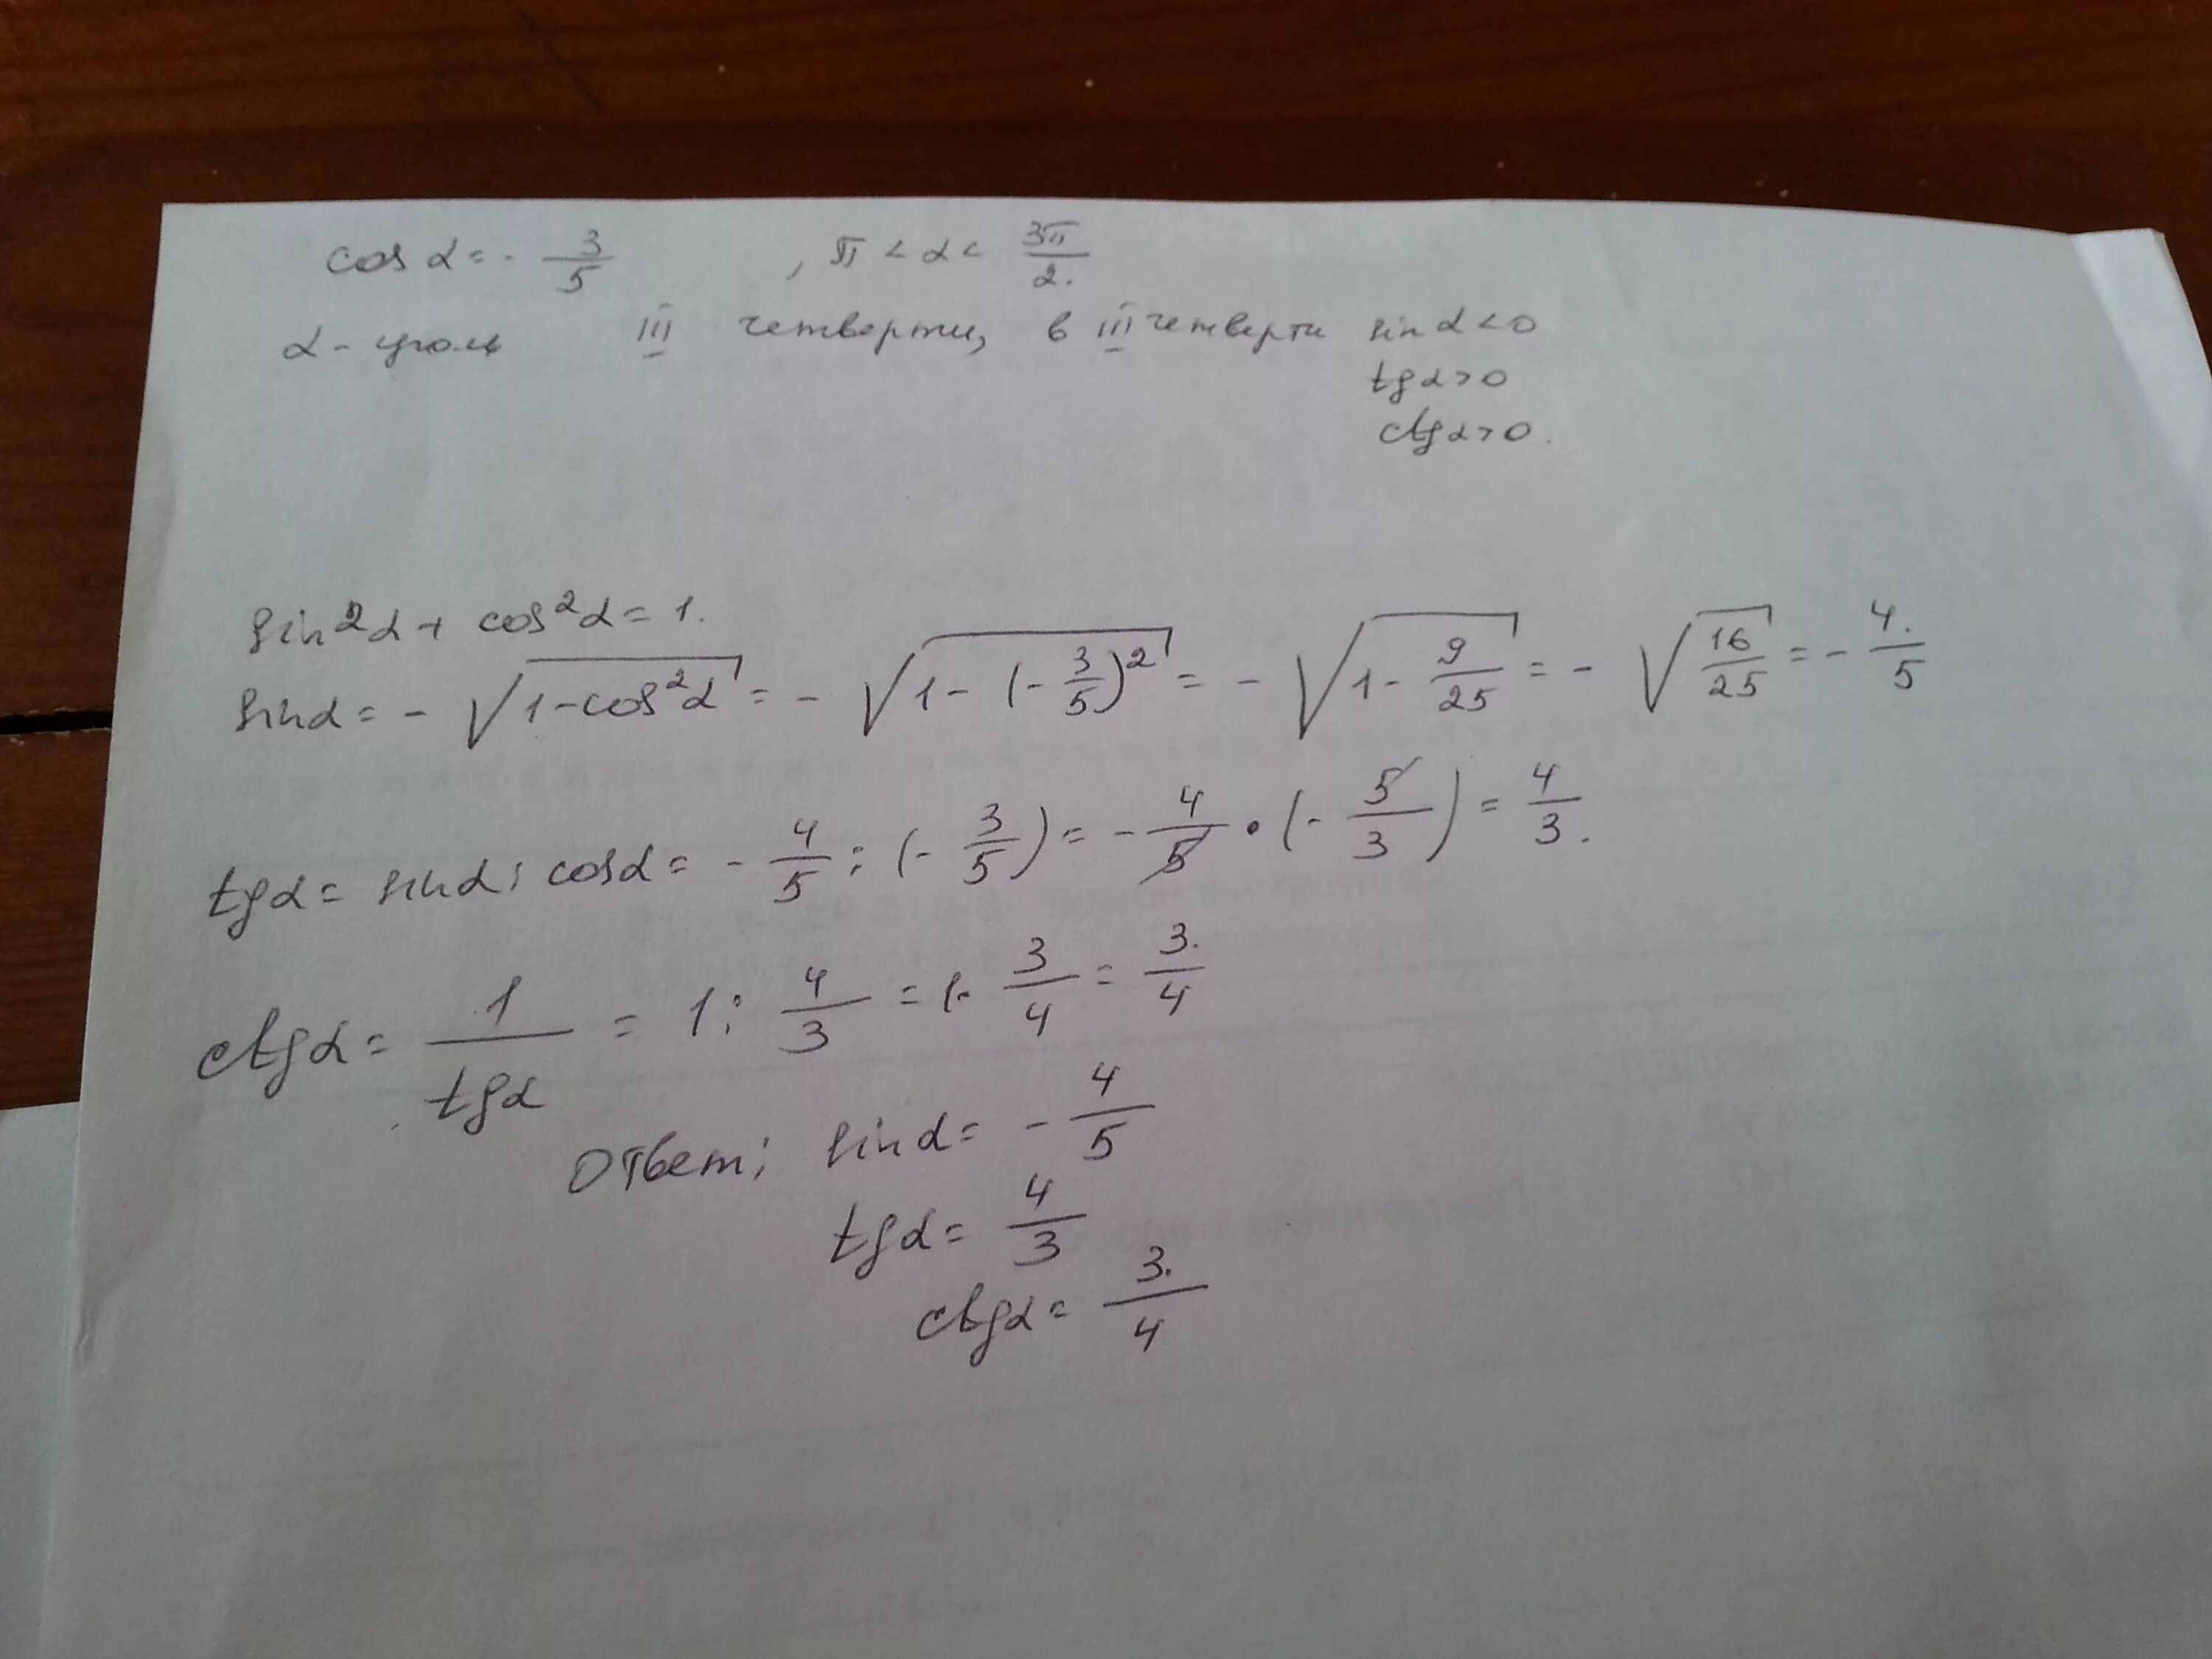 cos α = - 3/5 , π < α < 3π/2.
α - угол III четверти, в III четверти sin α < 0
tg α > 0
ctg α > 0.
sin²α + cos²α = 1.
sin α = - √(1 - cos²α) = - √(1 - (- 3/5)²) = - √(1 - 9/25) = - √(16/25) = - 4/5.
tg α = sin α : cos α = - 4/5 : (- 3/5) = - 4/5 • (- 5/3) = 4/3.
ctg α = 1/tg α = 1 : 4/3 = 1 · 3/4 = 3/4.
Ответ: sin α = - 4/5
tg α = 4/3
ctg α = 3/4.